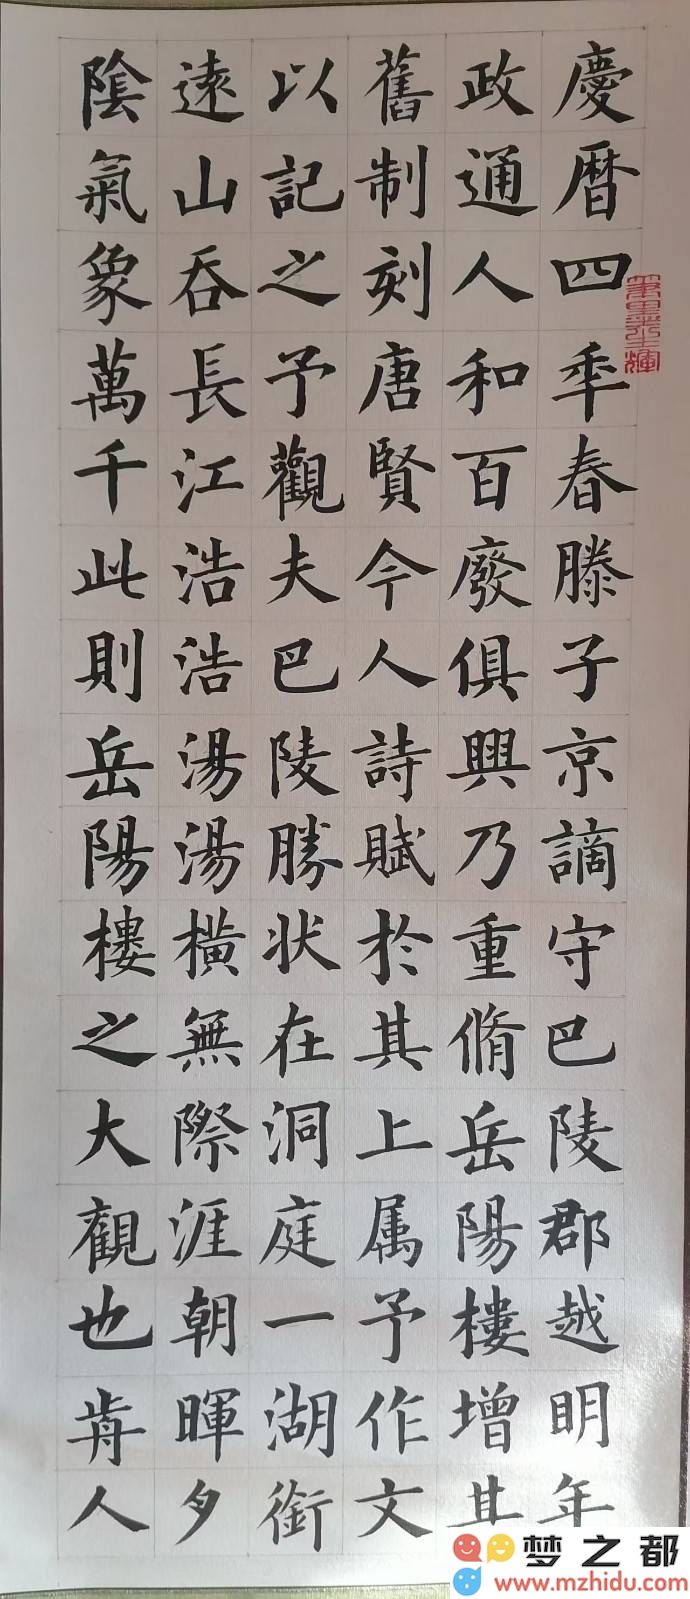 慶暦四年春滕子京謫守巴陵郡越明年
政通人和百廢俱興乃重脩岳陽樓增其
舊制刻唐賢今人詩賦於其上属予作文
以記之予觀夫巴陵勝状在洞庭一湖銜
遠山吞長江浩浩湯湯横無際涯朝暉夕
陰氣象萬千此則岳陽樓之大觀也前人
筆墨生輝
梦之都
www.mzhidu.com